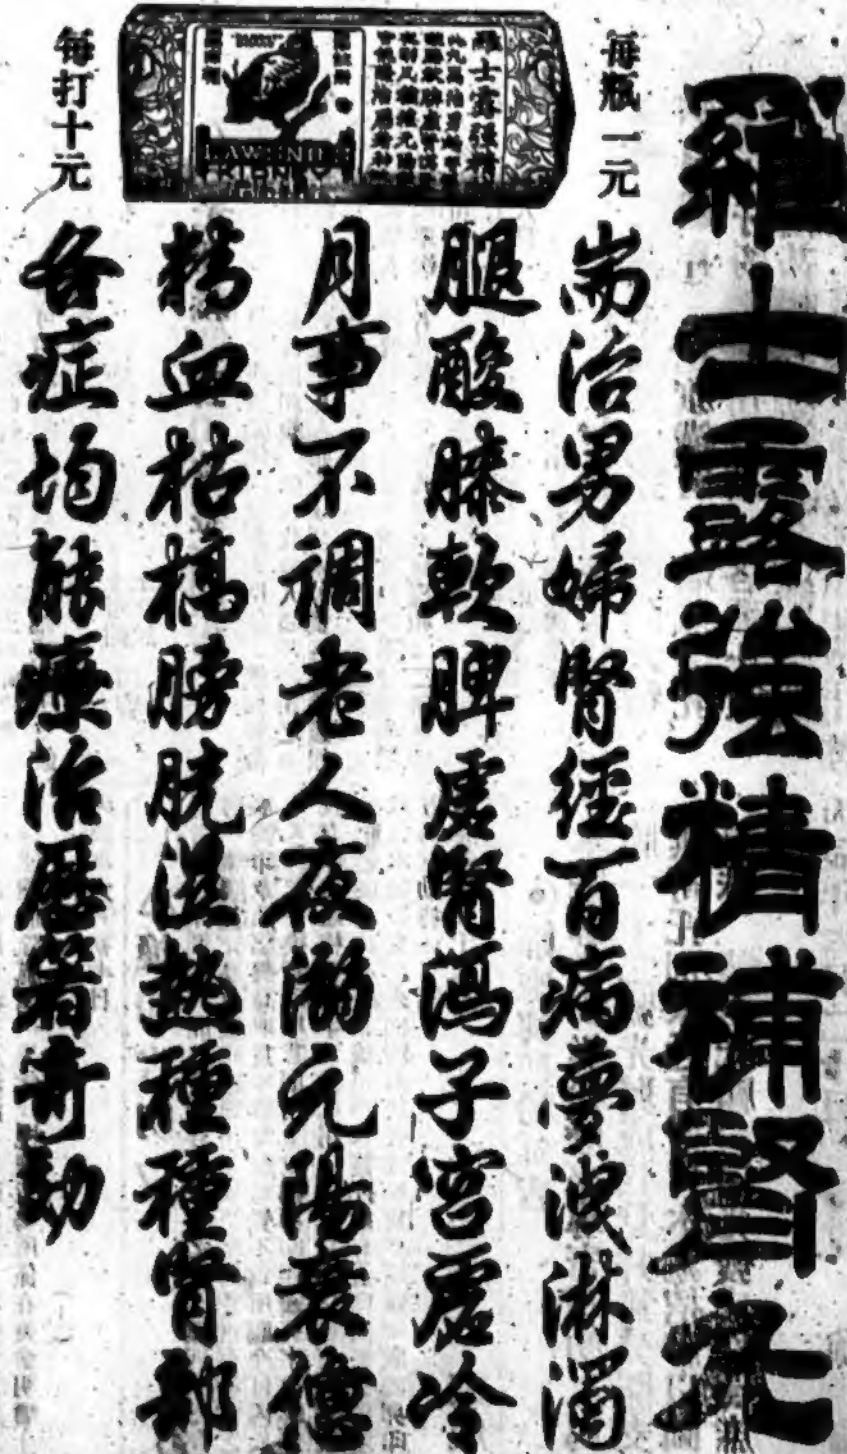 羅士露強精補腎丸
每瓶一元
耑治男婦腎經百病夢洩淋濁
腿酸膝軟脾虛腎瀉子宮虛冷
月事不調老人夜溺元陽衰憊
精血枯槁膀胱濕熱種種腎部
各症均能療治歷著奇効
每打十元